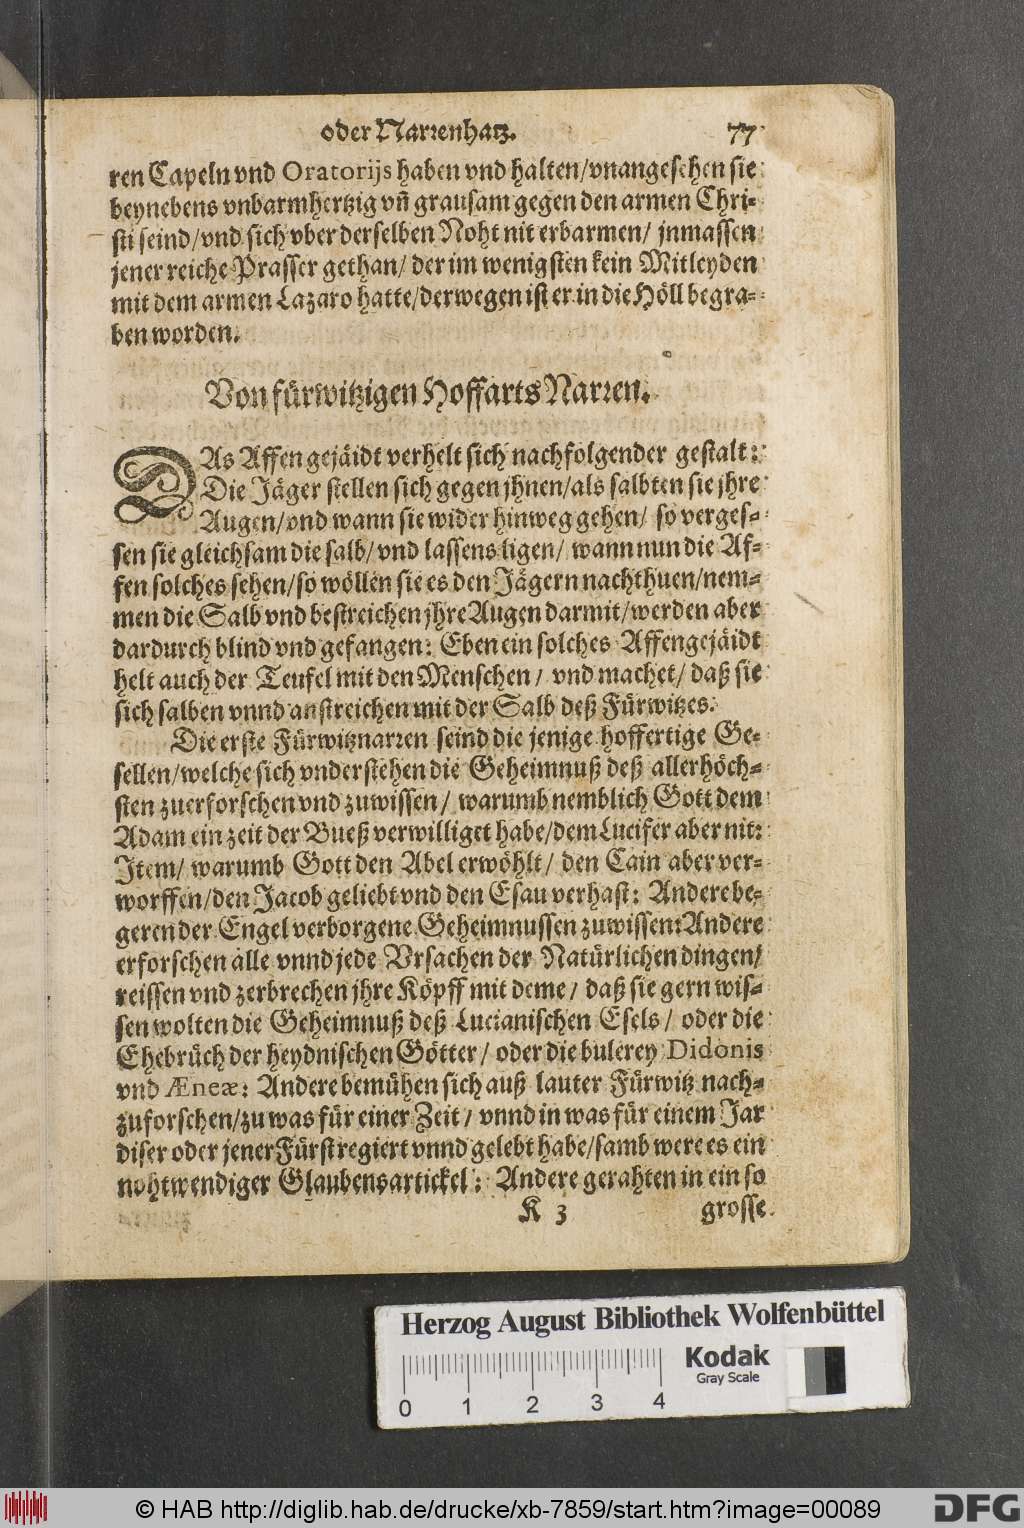 oder Narrenhatz. 77
ren Capeln vnd Oratorijs haben vnd halten/vnangesehen sie
beynebens vnbarmhertzig vñ grausam gegen den armen Chri-
sti seind/vnd sich vber derselben Noht nit erbarmen/ jnmassen
jener reiche Prasser gethan/ der im wenigsten kein Mitleyden
mit dem armen Lazaro hatte/derwegen ist er in die Höll begra-
ben worden.
Von fürwitzigen Hoffarts Narren.
DAs Affengejäidt verhelt sich nachfolgender gestalt:
Die Jäger stellen sich gegen jhnen/als salbten sie jhre
Augen/vnd wann sie wider hinweg gehen/ so verges-
sen sie gleichsam die salb/ vnd lassens ligen/ wann nun die Af-
fen solches sehen/so wöllen sie es den Jägern nachthuen/nem-
men die Salb vnd bestreichen jhre Augen darmit/werden aber
dardurch blind vnd gefangen: Eben ein solches Affengejäidt
helt auch der Teufel mit den Menschen/ vnd machet/ daß sie
sich salben vnnd anstreichen mit der Salb deß Fürwitzes.
Die erste Fürwitznarren seind die jenige hoffertige Ge-
sellen/welche sich vnderstehen die Geheimnuß deß allerhöch-
sten zuerforschen vnd zuwissen/ warumb nemblich Gott dem
Adam ein zeit der Bueß verwilliget habe/dem Lucifer aber nit:
Item/ warumb Gott den Abel erwöhlt/ den Cain aber ver-
worffen/den Jacob geliebt vnd den Esau verhast: Andere be-
geren der Engel verborgene Geheimnussen zuwissen: Andere
erforschen alle vnnd jede Vrsachen der Natürlichen dingen/
reissen vnd zerbrechen jhre Köpff mit deme/ daß sie gern wis-
sen wolten die Geheimnuß deß Lucianischen Esels/ oder die
Ehebrüch der heydnischen Götter/ oder die bulerey Didonis
vnd Æneæ: Andere bemühen sich auß lauter Fürwitz nach-
zuforschen/zu was für einer Zeit/ vnnd in was für einem Jar
diser oder jener Fürst regiert vnnd gelebt habe/samb were es ein
nohtwendiger Glaubensartickel: Andere gerahten in ein so
K 3 grosse
Herzog August Bibliothek Wolfenbüttel
Kodak
Gray Scale
0 1 2 3 4
© HAB http://diglib.hab.de/drucke/xb-7859/start.htm?image=00089
DFG